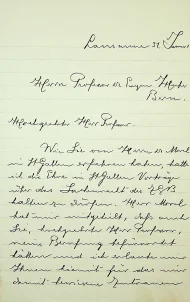 Lausanne
Herrn Professor Dr Eugen Huber
Bern.
Hochgeehrter Herr Professor.
Wie Sie von Herrn Dr
in St Gallen erfahren haben, hatte
ich die Ehre in St Gallen Vorträge
über das Sachenrecht des Z.G.B
halten zu dürfen. Herr
hat mir mitgeteilt, dass auch
Sie, hochgeehrter Herr Professor,
meine Berufung befürwortet
hatten und ich erlaube mir
Ihnen hiemit für das mir
damit bewiesene Zutrauen